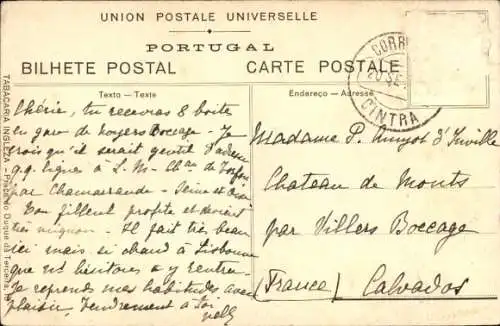 UNION POSTALE UNIVERSELLE
PORTUGAL
BILHETE POSTAL
CARTE POSTALE
CORR
20 SE
CINTRA
Texto — Texte
Endereço — Adresse
TABACARIA INGLEZA — Praça do Duque da Terceira, 18
Chérie, tu recevras 8 boite
en gare de Noyers Boccage — Je
crois qu'il serait gentil d'adresser
q.q. lignes à S. M.
par Chamarande — Seine et Oise
Ton filleul profite et devient
très mignon. Il fait très beau
ici mais si chaud à Lisbonne
que ns hésitons à y rentrer.
Je reprends mes habitudes avec
plaisir, tendrement à toi
Madame P. Amyot d'Inville
Chateau de Monts
par Villers Boccage
(France) Calvados